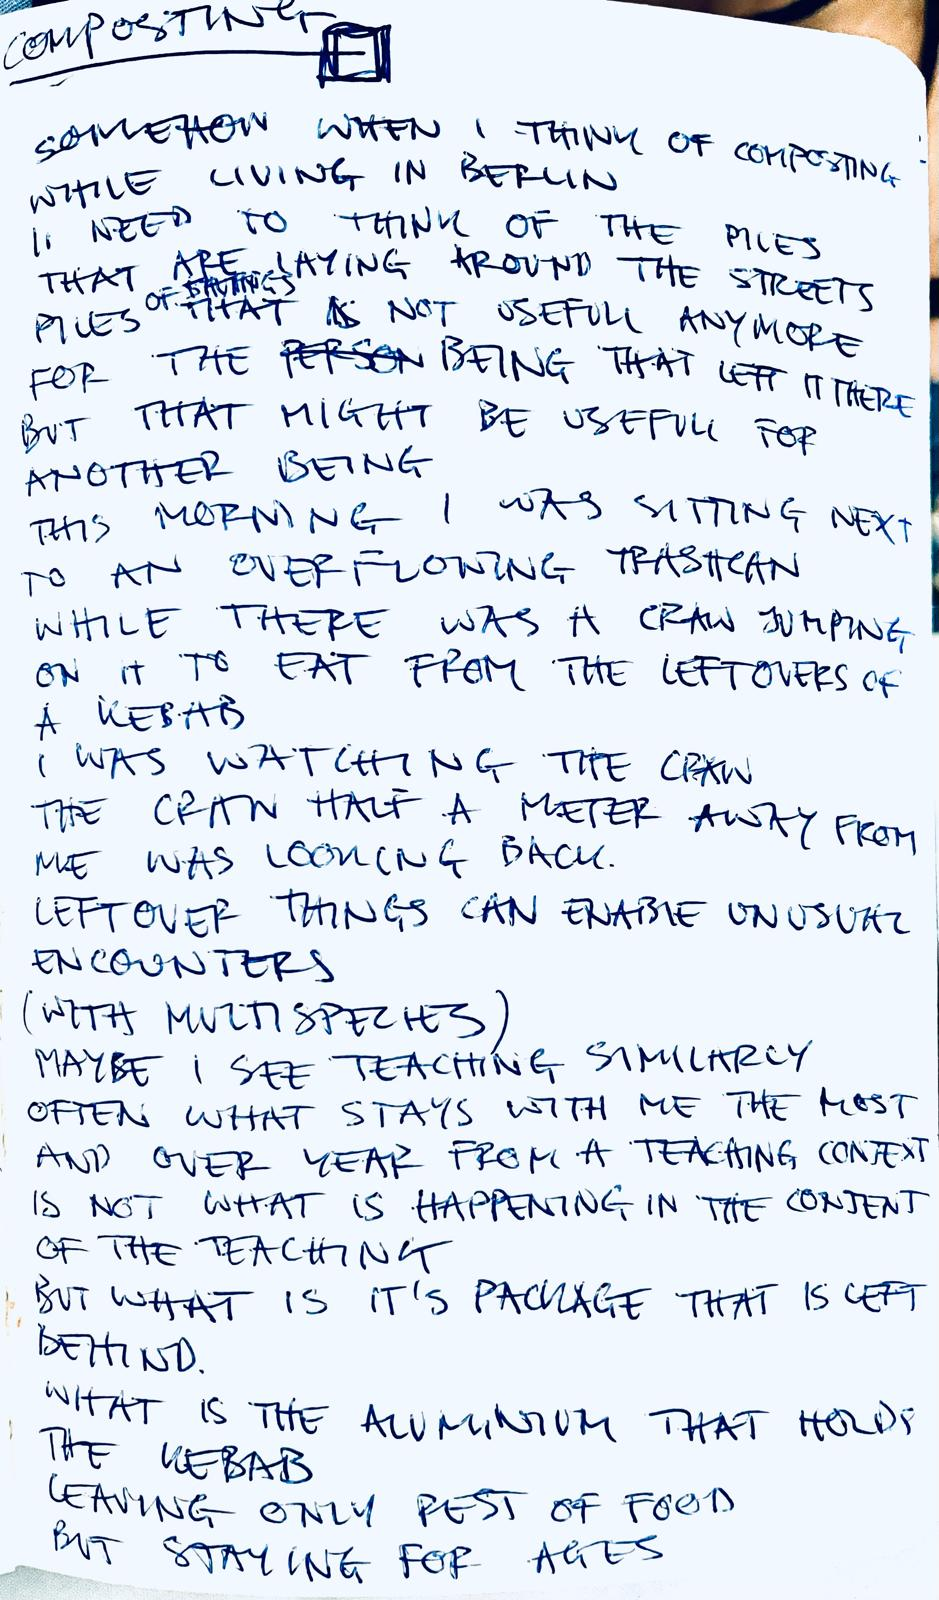 COMPOSTING
SOMEHOW WHEN I THINK OF COMPOSTING
WHILE LIVING IN BERLIN
I NEED TO THINK OF THE PILES
THAT ARE LAYING AROUND THE STREETS
PILES OF THINGS THAT IS NOT USEFULL ANYMORE
FOR THE PERSON BEING THAT LEFT IT THERE
BUT THAT MIGHT BE USEFULL FOR
ANOTHER BEING
THIS MORNING I WAS SITTING NEXT
TO AN OVERFLOWING TRASHCAN
WHILE THERE WAS A CRAW JUMPING
ON IT TO EAT FROM THE LEFTOVERS OF
A KEBAB
I WAS WATCHING THE CRAW
THE CRAW HALF A METER AWAY FROM
ME WAS LOOKING BACK.
LEFTOVER THINGS CAN ENABLE UNUSUAL
ENCOUNTERS
(WITH MULTISPECIES)
MAYBE I SEE TEACHING SIMILARLY
OFTEN WHAT STAYS WITH ME THE MOST
AND OVER YEAR FROM A TEACHING CONTEXT
IS NOT WHAT IS HAPPENING IN THE CONTENT
OF THE TEACHING
BUT WHAT IS IT'S PACKAGE THAT IS LEFT
BEHIND.
WHAT IS THE ALUMINIUM THAT HOLDS
THE KEBAB
LEAVING ONLY REST OF FOOD
BUT STAYING FOR AGES